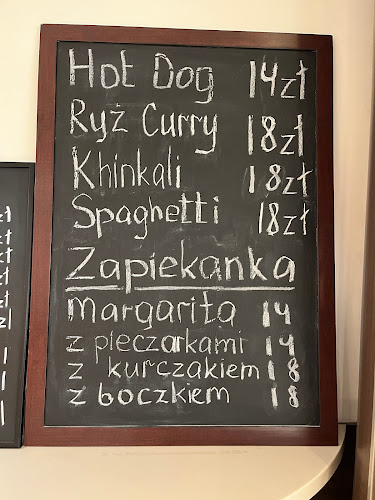 Hot Dog 14zł
Ryż Curry 18zł
Khinkali 18zł
Spaghetti 18zł
Zapiekanka
Margarita 14
z pieczarkami 14
z kurczakiem 18
z boczkiem 18